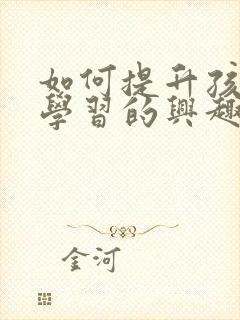 如何提升孩
學習的興趣
金河